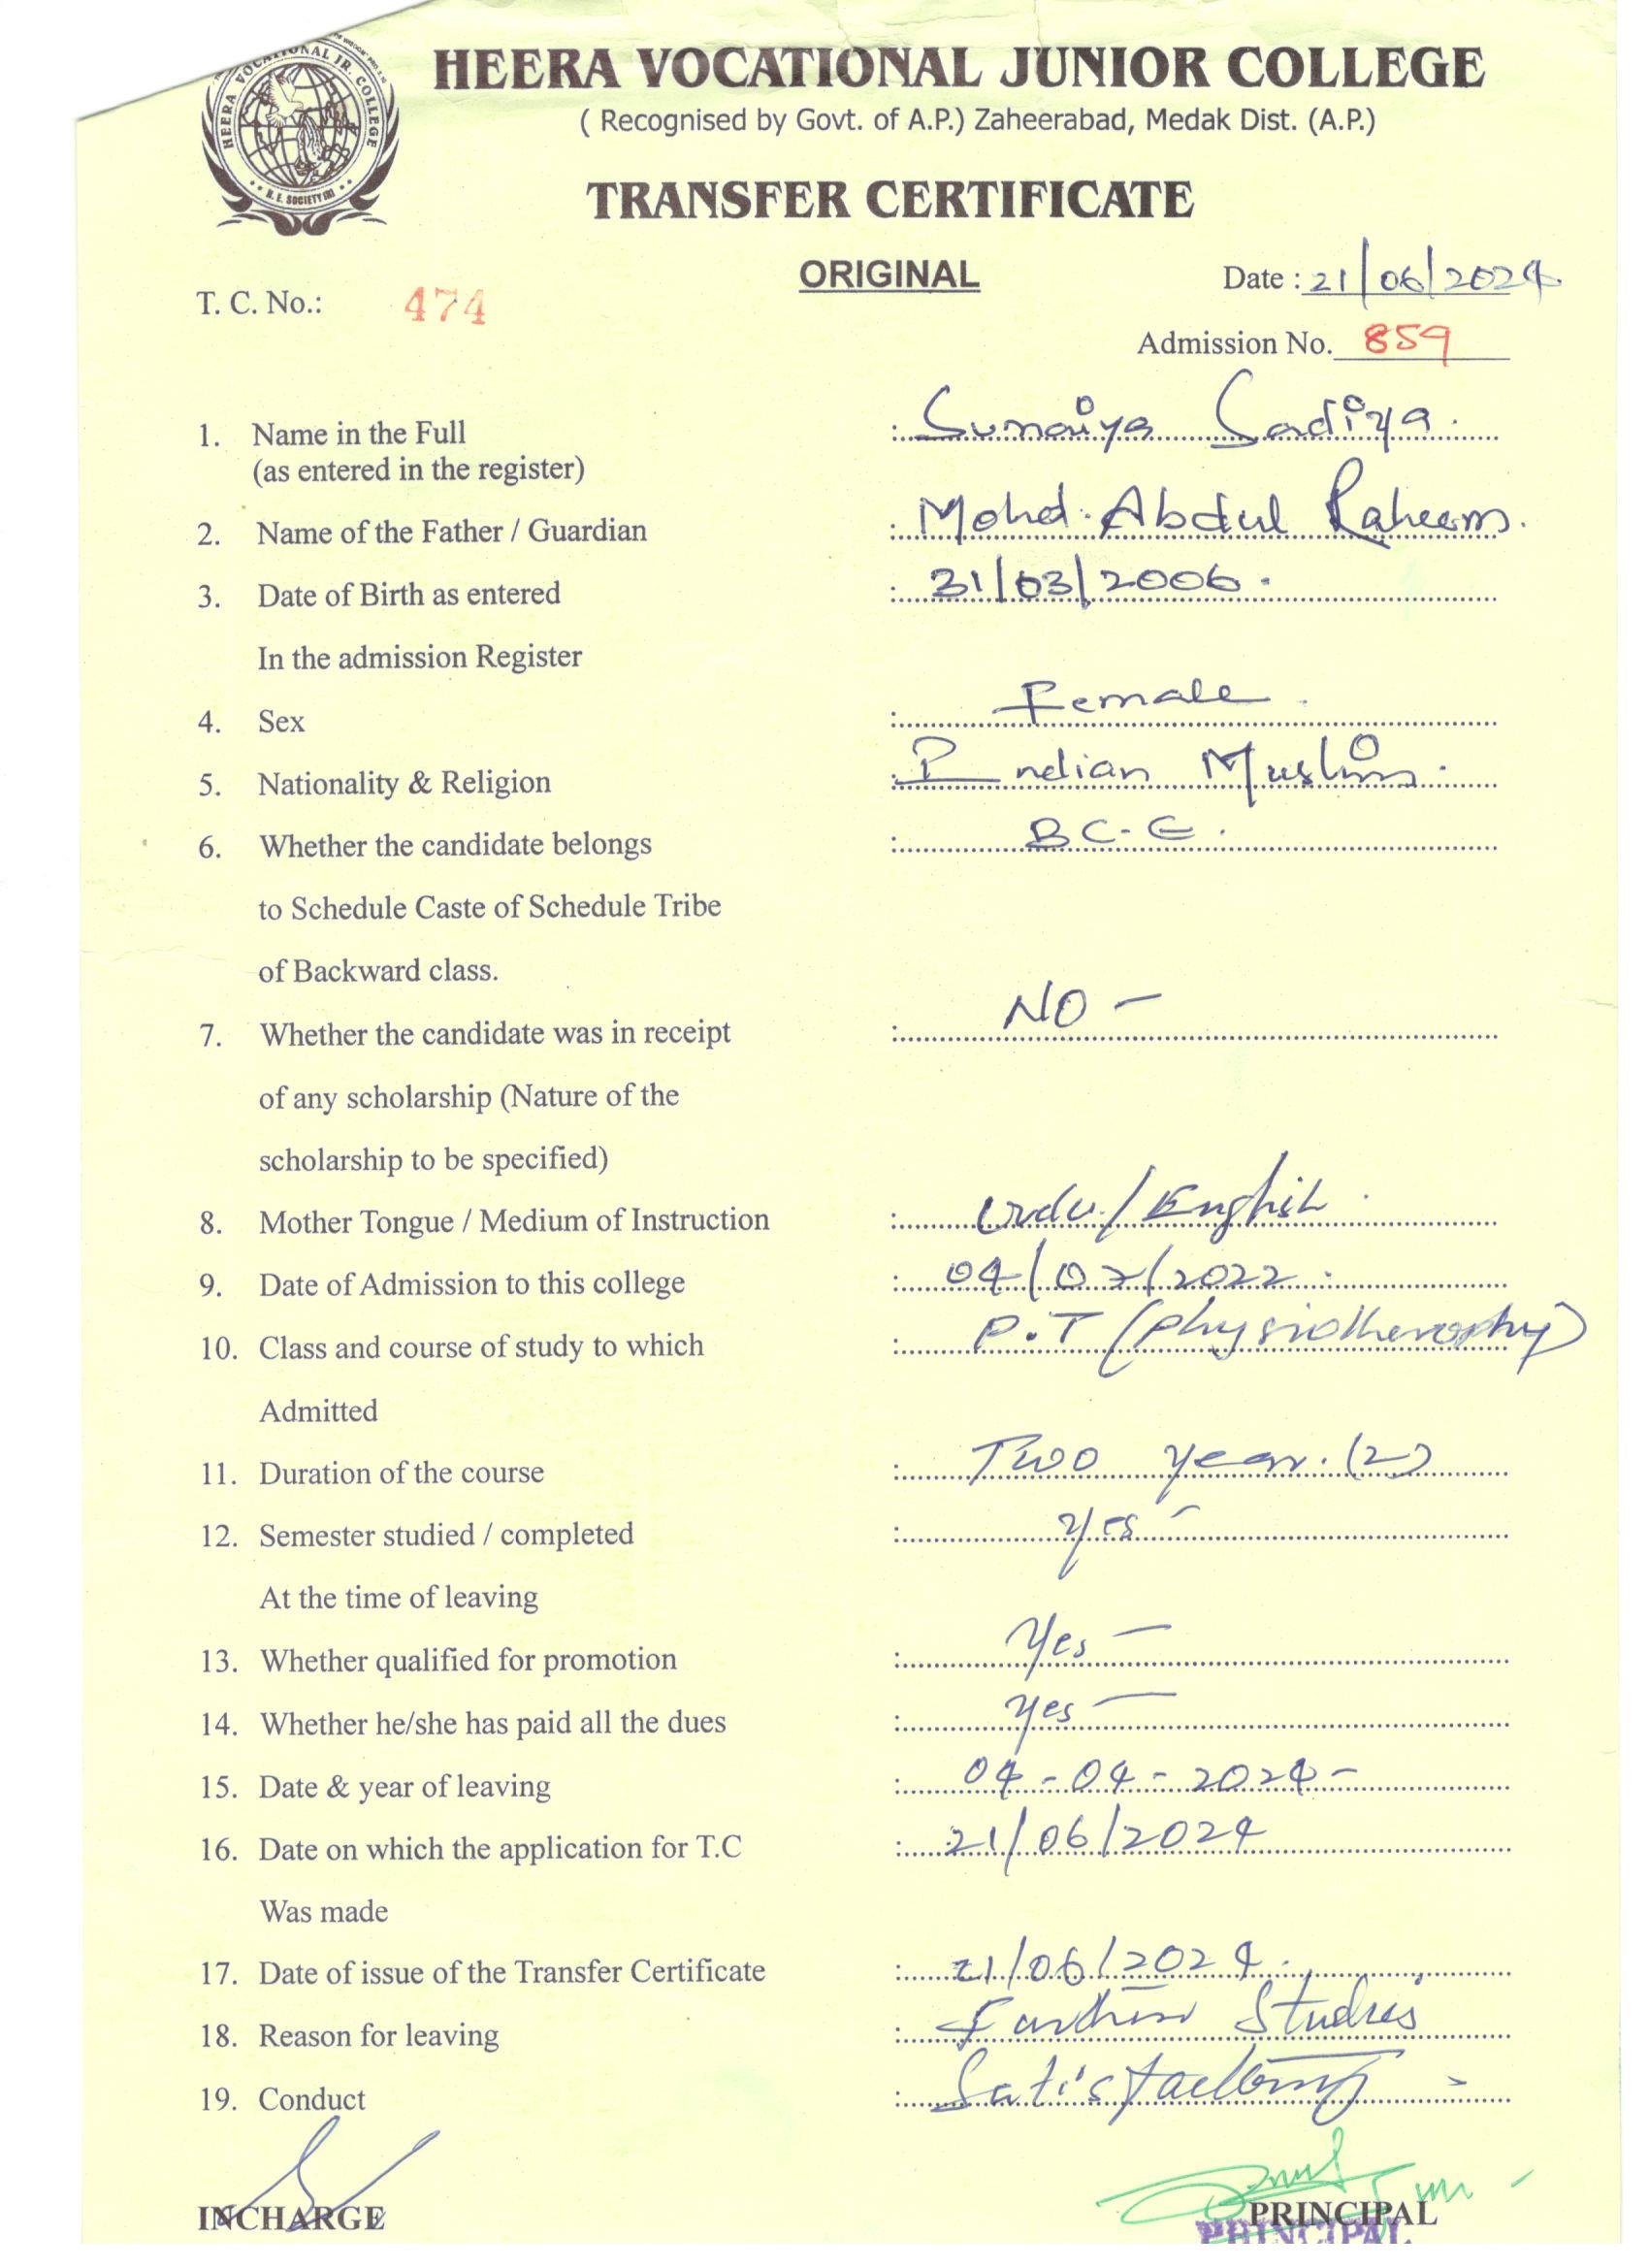 HEERA VOCATIONAL JR. COLLEGE
H. E. SOCIETY (R)
HEERA VOCATIONAL JUNIOR COLLEGE
( Recognised by Govt. of A.P.) Zaheerabad, Medak Dist. (A.P.)
TRANSFER CERTIFICATE
ORIGINAL
Date : 21/06/2024
T. C. No.: 474
Admission No. 859
1. Name in the Full : Sumaiya Sadiya.
(as entered in the register)
2. Name of the Father / Guardian : Mohd. Abdul Raheem.
3. Date of Birth as entered : 31/03/2006.
In the admission Register
4. Sex : Female.
5. Nationality & Religion : Indian Muslim.
6. Whether the candidate belongs : BC-E.
to Schedule Caste of Schedule Tribe
of Backward class.
7. Whether the candidate was in receipt : NO -
of any scholarship (Nature of the
scholarship to be specified)
8. Mother Tongue / Medium of Instruction : Urdu/English.
9. Date of Admission to this college : 04/07/2022.
10. Class and course of study to which : P.T (Physiotheraphy)
Admitted
11. Duration of the course : Two year.(2)
12. Semester studied / completed : Yes -
At the time of leaving
13. Whether qualified for promotion : Yes -
14. Whether he/she has paid all the dues : Yes -
15. Date & year of leaving : 04-04-2024-
16. Date on which the application for T.C : 21/06/2024
Was made
17. Date of issue of the Transfer Certificate : 21/06/2024.
18. Reason for leaving : Further Studies
19. Conduct : Satisfactory -
INCHARGE
PRINCIPAL
PRINCIPAL